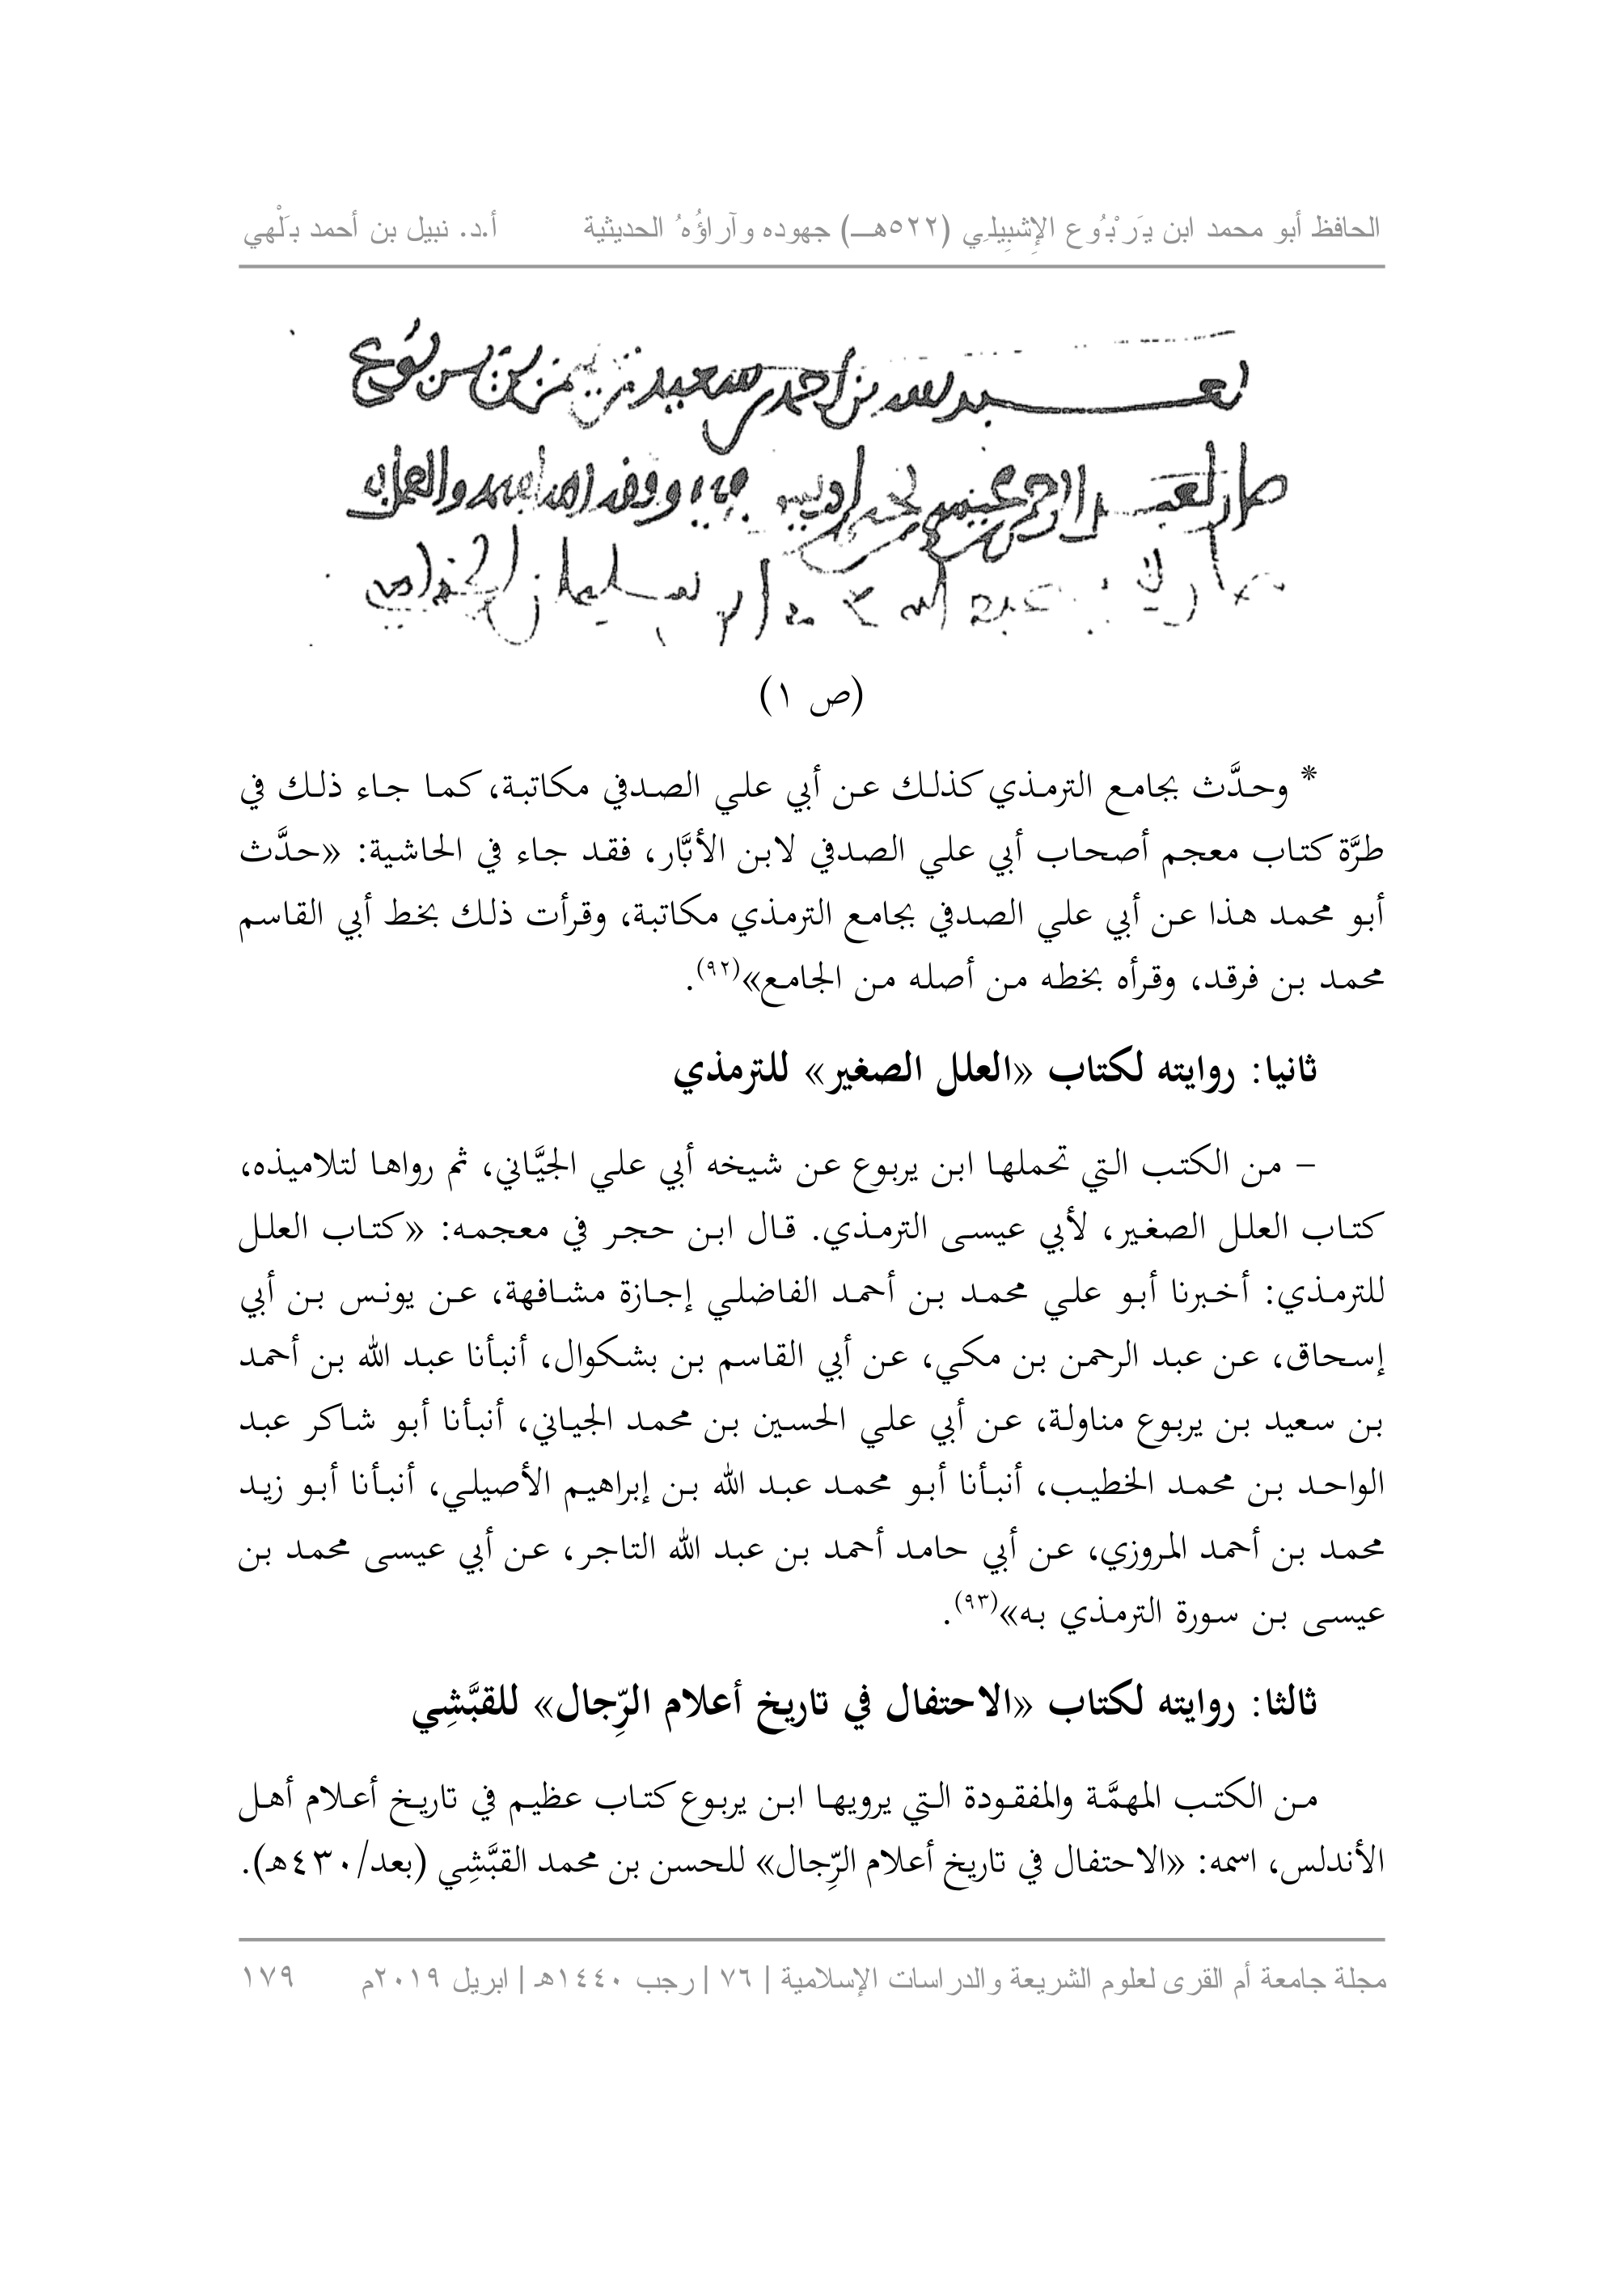 الحافظ أبو محمد ابن يَرَبْوُع الإِشبِيلِي (٥٢٢هـ) جهوده وآراؤُهُ الحديثية أ.د. نبيل بن أحمد بَلْهي
لعبد لله بن احمد بن سعيد بن يربوع
(ص ١)
* وحدَّث بجامع الترمذي كذلك عن أبي علي الصدفي مكاتبة، كما جاء ذلك في
طرَّة كتاب معجم أصحاب أبي علي الصدفي لابن الأبَّار، فقد جاء في الحاشية: «حدَّث
أبو محمد هذا عن أبي علي الصدفي بجامع الترمذي مكاتبة، وقرأت ذلك بخط أبي القاسم
محمد بن فرقد، وقرأه بخطه من أصله من الجامع»(٩٢).
ثانيا: روايته لكتاب «العلل الصغير» للترمذي
– من الكتب التي تحملها ابن يربوع عن شيخه أبي علي الجيَّاني، ثم رواها لتلاميذه،
كتاب العلل الصغير، لأبي عيسى الترمذي. قال ابن حجر في معجمه: «كتاب العلل
للترمذي: أخبرنا أبو علي محمد بن أحمد الفاضلي إجازة مشافهة، عن يونس بن أبي
إسحاق، عن عبد الرحمن بن مكي، عن أبي القاسم بن بشكوال، أنبأنا عبد الله بن أحمد
بن سعيد بن يربوع مناولة، عن أبي علي الحسين بن محمد الجياني، أنبأنا أبو شاكر عبد
الواحد بن محمد الخطيب، أنبأنا أبو محمد عبد الله بن إبراهيم الأصيلي، أنبأنا أبو زيد
محمد بن أحمد المروزي، عن أبي حامد أحمد بن عبد الله التاجر، عن أبي عيسى محمد بن
عيسى بن سورة الترمذي به»(٩٣).
ثالثا: روايته لكتاب «الاحتفال في تاريخ أعلام الرِّجال» للقبَّشِي
من الكتب المهمَّة والمفقودة التي يرويها ابن يربوع كتاب عظيم في تاريخ أعلام أهل
الأندلس، اسمه: «الاحتفال في تاريخ أعلام الرِّجال» للحسن بن محمد القبَّشِي (بعد/٤٣٠هـ).
مجلة جامعة أم القرى لعلوم الشريعة والدراسات الإسلامية | ٧٦ | رجب ١٤٤٠هـ | ابريل ٢٠١٩م ١٧٩